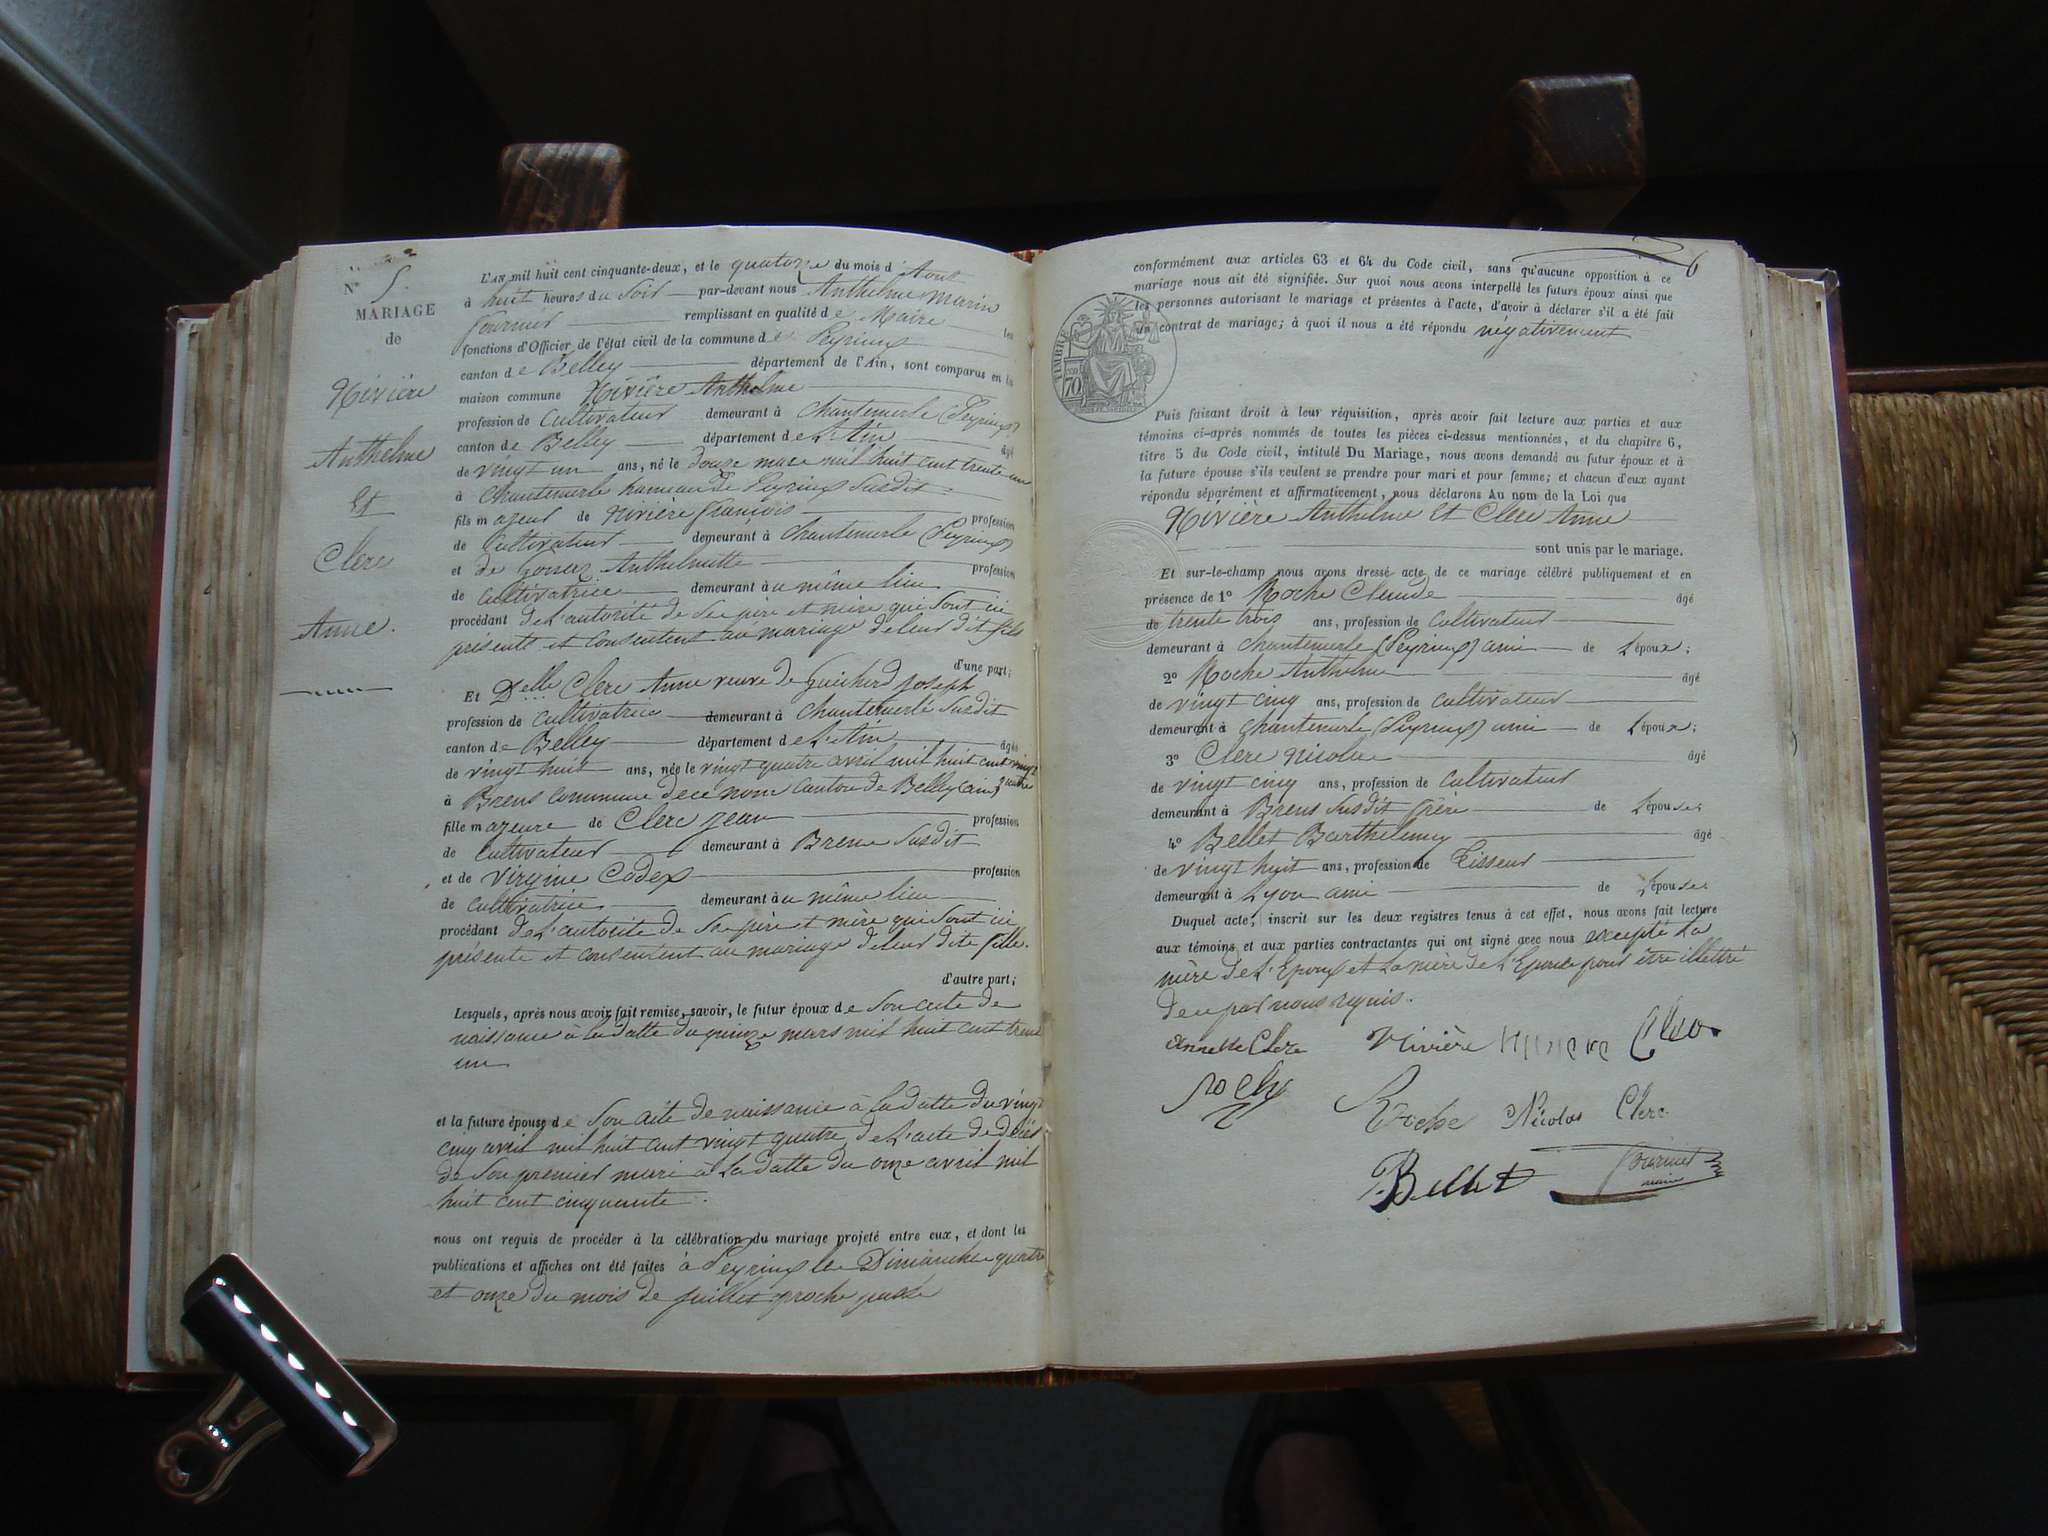 N° 5.
MARIAGE
de
Rivière
Anthelme
Et
Clerc
Anne.
L'AN mil huit cent cinquante-deux, et le quatorze du mois d'Aout
à huit heures du Soir par-devant nous Anthelme Marin
Fournier remplissant en qualité de Maire les
fonctions d'Officier de l'état civil de la commune de Peyrieux
canton de Belley département de l'Ain, sont comparus en la
maison commune Rivière Anthelme
profession de Cultivateur demeurant à Chantemerle (Peyrieux)
canton de Belley département de L'Ain âgé
de vingt un ans, né le douze mars mil huit cent trente un
à Chantemerle hameau de Peyrieux Susdit
fils majeur de Rivière françois profession
de Cultivateur demeurant à Chantemerle (Peyrieux)
et de Anthelmette profession
de cultivatrice demeurant au même lieu
procédant de L'autorité de Se père et mère qui Sont ici
présents et consentent au mariage de leur dit fils
d'une part;
Et Delle Clerc Anne veuve de Guichard Joseph
profession de cultivatrice demeurant à Chantemerle Susdit
canton de Belley département de L'Ain âgée
de vingt huit ans, née le vingt quatre avril mil huit cent vingt quatre
à Brens commune de ce nom canton de Belley (ain)
fille majeure de Clerc jean profession
de Cultivateur demeurant à Brens Susdit
et de Virginie Codex profession
de cultivatrice demeurant au même lieu
procédant de L'autorité de Se père et mère qui Sont ici
présents et consentent au mariage de leur dite fille.
d'autre part;
Lesquels, après nous avoir fait remise, savoir, le futur époux de Son acte de
naissance à la datte du quinze mars mil huit cent trente
un
et la future épouse de Son acte de naissance à la datte du vingt
cinq avril mil huit cent vingt quatre, de L'acte de décès
de Son premier mari à la datte du onze avril mil
huit cent cinquante.
nous ont requis de procéder à la célébration du mariage projeté entre eux, et dont les
publications et affiches ont été faites à Peyrieux les Dimanches quatre
et onze du mois de juillet proche passé
6
conformément aux articles 63 et 64 du Code civil, sans qu'aucune opposition à ce
mariage nous ait été signifiée. Sur quoi nous avons interpellé les futurs époux ainsi que
les personnes autorisant le mariage et présentes à l'acte, d'avoir à déclarer s'il a été fait
un contrat de mariage; à quoi il nous a été répondu négativement
TIMBRE
70
Puis faisant droit à leur réquisition, après avoir fait lecture aux parties et aux
témoins ci-après nommés de toutes les pièces ci-dessus mentionnées, et du chapitre 6,
titre 5 du Code civil, intitulé Du Mariage, nous avons demandé au futur époux et à
la future épouse s'ils veulent se prendre pour mari et pour femme; et chacun d'eux ayant
répondu séparément et affirmativement, nous déclarons Au nom de la Loi que
Rivière Anthelme Et Clerc Anne
sont unis par le mariage.
Et sur-le-champ nous avons dressé acte de ce mariage célébré publiquement et en
présence de 1° Roche Claude âgé
de trente trois ans, profession de Cultivateur
demeurant à Chantemerle (Peyrieux) ami de L'époux;
2° Roche Anthelme âgé
de vingt cinq ans, profession de cultivateur
demeurant à Chantemerle (Peyrieux) ami de L'époux;
3° Clerc Nicolas âgé
de vingt cinq ans, profession de cultivateur
demeurant à Brens Susdit frère de L'épouse;
4° Bellet Barthelemy âgé
de vingt huit ans, profession de Tisseur
demeurant à Lyon ami de L'épouse;
Duquel acte, inscrit sur les deux registres tenus à cet effet, nous avons fait lecture
aux témoins et aux parties contractantes qui ont signé avec nous excepté La
mère de L'Epoux et La mère de L'Epouse pour être illettré
de ce par nous requis.
Annette Clerc Rivière Clerc
Roche Nicolas Clerc
Bellet Fournier
maire